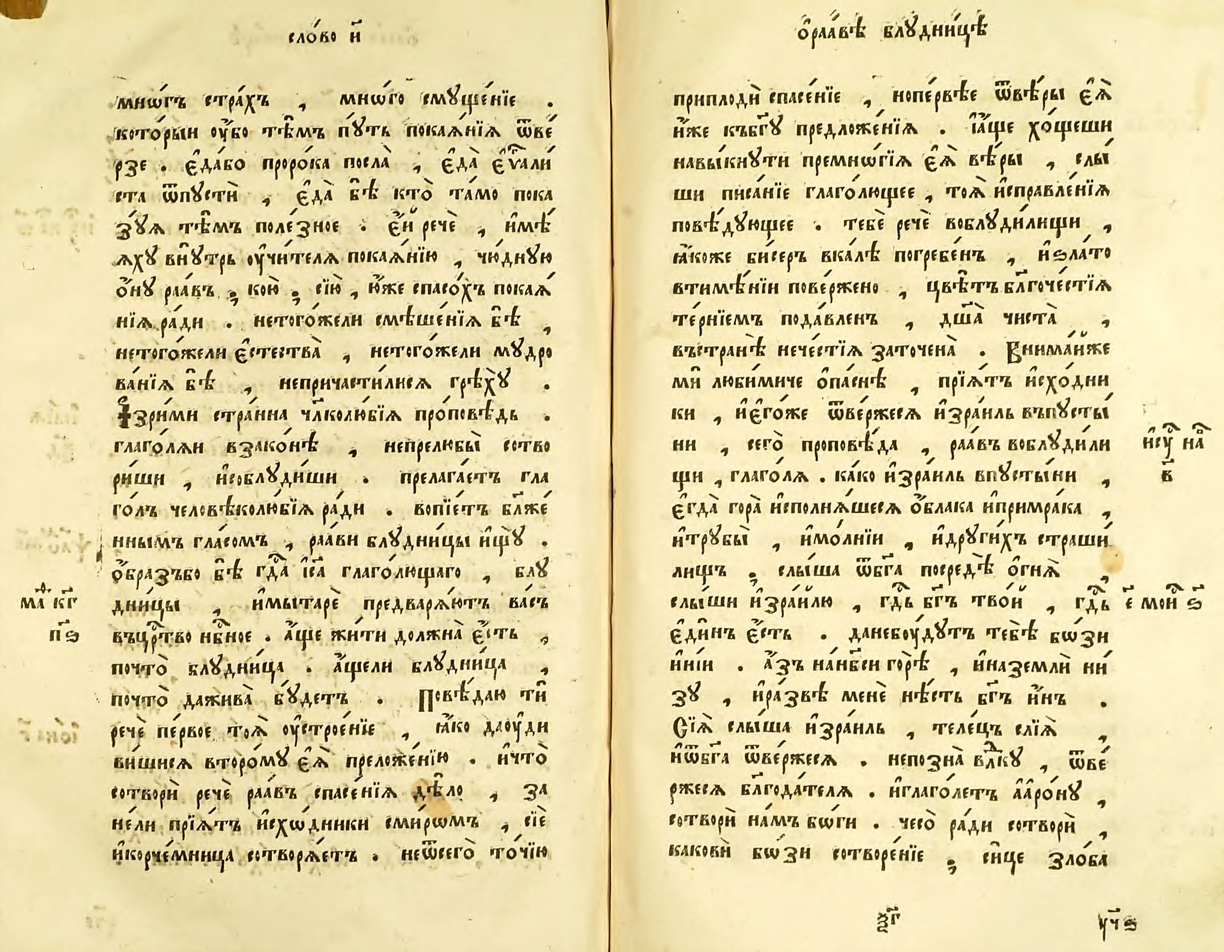 сло́во и҃
мнѡ́гъ стра́хъ , мно́го смꙋще́нїе .
кото́рыи ᲂу҆́бо тѣ̑мъ пꙋть покаѧ́нїѧ ѿве́
рзе . є҆да̀бо проро́ка посла̀ , є҆да̀ є҆ѵⷢ҇али
ста ѿпꙋстѝ , є҆да̀ бѣ̀ кто̀ та́мо пока
зꙋѧ тѣ̑мъ поле́зное . є҆́й речѐ , и҆мѣ́
ѧхꙋ внꙋ́трь ᲂу҆чи́телѧ покаѧ́нїю , чю́днꙋю
ѻ҆́нꙋ раа́въ ; ко́ю ; сїю̀ , ю҆́же спасо́хъ покаѧ́
нїѧ ра́ди . нетого́жели смѣше́нїѧ бѣ̀ ,
нетого́жели є҆стества̀ , нетого́жели мꙋдро
ва́нїѧ бѣ̀ , неприча́сти́лисѧ грѣхꙋ̀ .
И҆зри́ми стра́нна чл҃колю́бїѧ про́повѣдь .
глаго́лѧи взако́нѣ , непрелюбы̀ сотво
ри́ши , и҆соблꙋ́диши . прелага́етъ гла
го́лъ человѣколю́бїѧ ра́ди . вопїе́тъ бл҃же
ннымъ гла́сомъ , раа́ви блꙋдни́цы и҆щꙋ̀ .
ѻ҆́бразъбо бѣ̀ гдⷭ҇а і҆с҃а глаго́лющаго , блꙋ
дни́цы , и҆мытарѐ предварѧ́ютъ ва́съ
въцрⷭ҇тво нбⷭ҇ное . а҆́ще жи́ти должна̀ є҆́сть ,
почто̀ блꙋдни́ца . а҆́щели блꙋдни́ца ,
почто̀ дажива̀ бꙋ́детъ . Повѣ́даю тѝ
речѐ пе́рвое тоѧ̀ ᲂу҆строе́нїе , ꙗ҆́ко даᲂу҆ди
ви́шисѧ второ́мꙋ є҆ѧ̀ преложе́нїю . и҆что̀
сотворѝ речѐ раа́въ спасе́нїѧ дѣ́ло , за
не́ли прїѧ́тъ и҆схо́дники сми́рѡмъ , сїѐ
и҆корче́мница сотворѧ́етъ . неѿсего̀ то́чїю
ма́ⷴ҇ кг҃
п҃ѕ
ѻ҆раа́вѣ блꙋдни́цѣ
приплодѝ спасе́нїе , нопе́рвѣе ѿвѣ́ры є҆ѧ̀
и҆́же къбг҃ꙋ предложе́нїѧ . і҆а҆́ще хо́щеши
навы́кнꙋти премнѡ́гїѧ є҆ѧ̀ вѣ́ры , слы́
ши писа́нїе глаго́лющее , тоѧ̀ и҆справле́нїѧ
повѣ́дꙋющее . тебѐ речѐ воблꙋди́лищи ,
ꙗ҆́коже би́серъ вка́лѣ погребе́нъ , и҆ѕла́то
втимѣ́нїи пове́ржено , цвѣ́тъ бл҃гоче́стїѧ
те́рнїемъ пода́вленъ , дш҃а̀ чи́ста ,
въстранѣ̀ нече́стїѧ заточена̀ . Внима́йже
мѝ люби́миче ѻ҆па́снѣ , прїѧ́тъ и҆схо́дни
ки , и҆є҆го́же ѿве́ржесѧ и҆зра́иль въпꙋсты́
ни , сего̀ проповѣ́да , раа́въ воблꙋди́ли
щи , глаго́лѧ . ка́ко и҆зра́иль впꙋсты́ни ,
є҆гда̀ гора̀ и҆сполнѧ́шесѧ ѻ҆́блака и҆примра́ка ,
и҆трꙋбы̀ , и҆мо́лнїи , и҆дрꙋги́хъ страши́
лищъ ; слы́ша ѿбг҃а посредѣ̀ ѻ҆гнѧ̀
слы́ши и҆зра́илю , гдⷭ҇ь бг҃ъ тво́й , гдⷭ҇ь
є҆ди́нъ є҆́сть . данебꙋ́дꙋтъ тебѣ̀ бѡ́зи
и҆ні́и . а҆́зъ нанб҃си горѣ̀ , и҆наземлѝ ни́
зꙋ , и҆ра́звѣ менѐ нѣ́сть бг҃ъ и҆́нъ .
Сїѧ̀ слы́ша и҆зра́иль , теле́цъ слїѧ̀ ,
и҆ѿбг҃а ѿве́ржесѧ . непозна̀ влⷣкꙋ , ѿве́
ржесѧ бл҃года́телѧ . и҆глаго́летъ а҆арѡ́нꙋ ,
сотворѝ на́мъ бѡ́ги . чесо̀ ра́ди сотворѝ ,
какови̑ бѡ́зи сотворе́нїе ; си́це зло́ба
и҆сꙋⷭ҇ наⷡ҇
в҃
є҃ мойⷭ҇ ѕ҃
ѯ҃г
уч҃ѕ